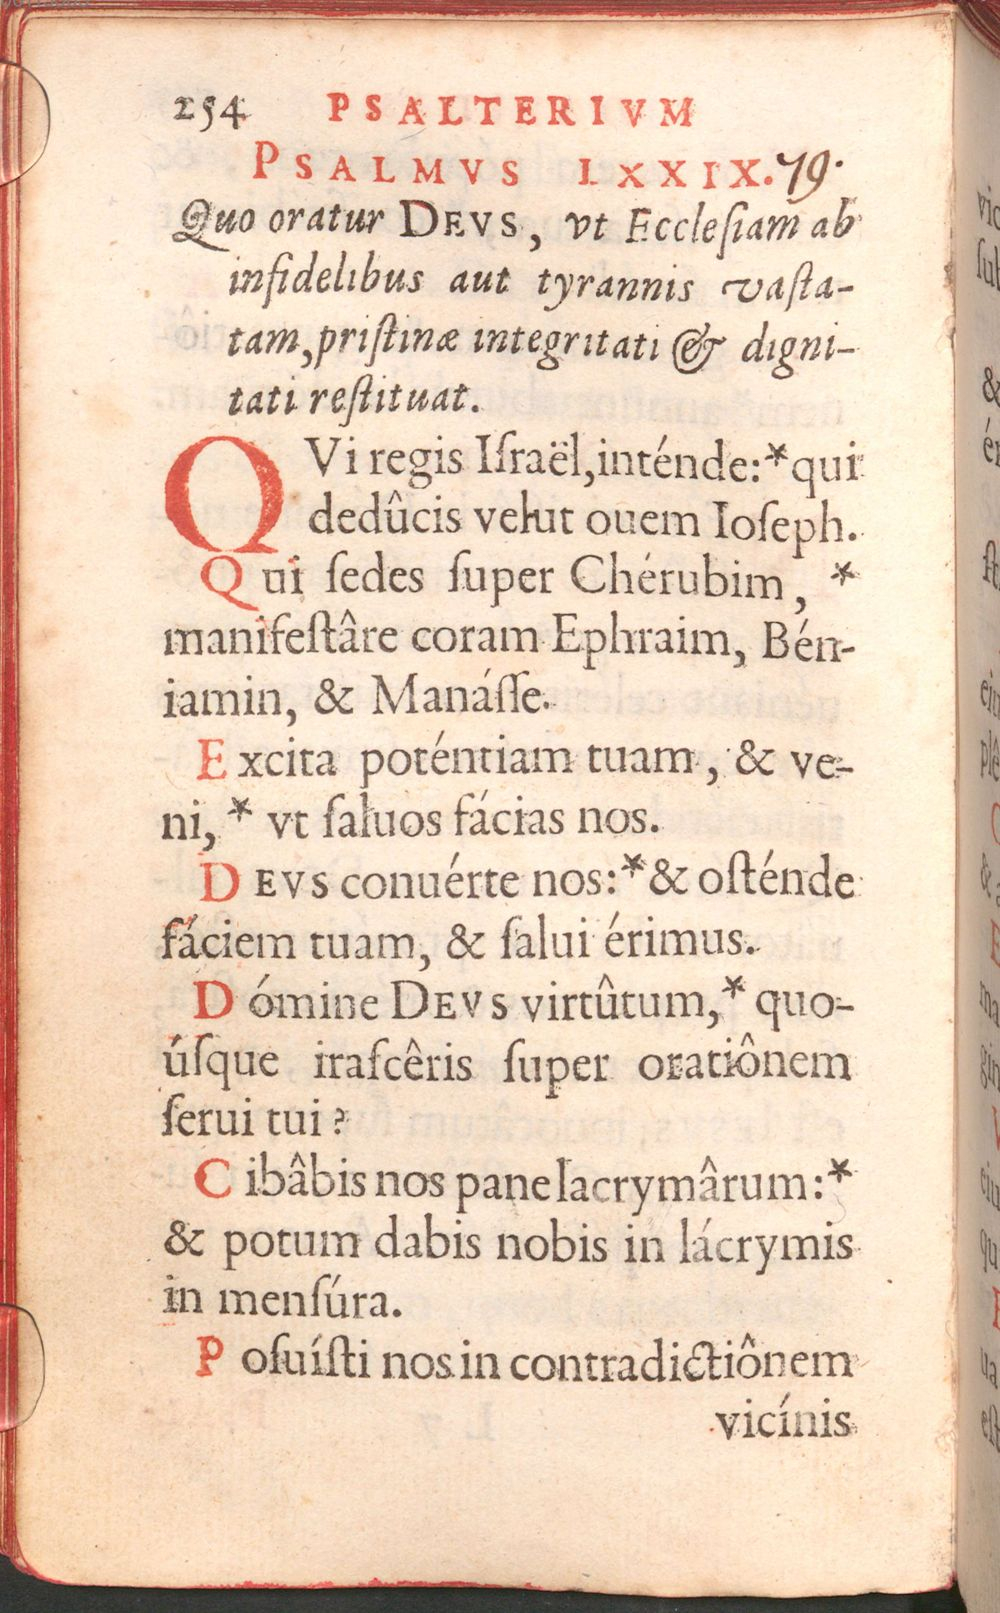 254 PSALTERIVM
PSALMVS LXXIX. 79.
Quo oratur DEVS, vt Eccleſiam ab
infidelibus aut tyrannis vaſta-
tam, priſtinæ integritati & digni-
tati reſtituat.
QVi regis Iſraël, inténde:* qui
dedûcis velut ouem Ioſeph.
Qui ſedes ſuper Chérubim, *
manifeſtâre coram Ephraim, Bén-
iamin, & Manáſſe.
Excita poténtiam tuam, & ve-
ni, * vt ſaluos fácias nos.
DEVS conuérte nos:* & oſténde
fáciem tuam, & ſalui érimus.
Dómine DEVS virtûtum,* quo-
úſque iraſcêris ſuper oratiônem
ſerui tui?
Cibâbis nos pane lacrymârum:*
& potum dabis nobis in lácrymis
in menſúra.
Poſuíſti nos in contradictiônem
vicínis